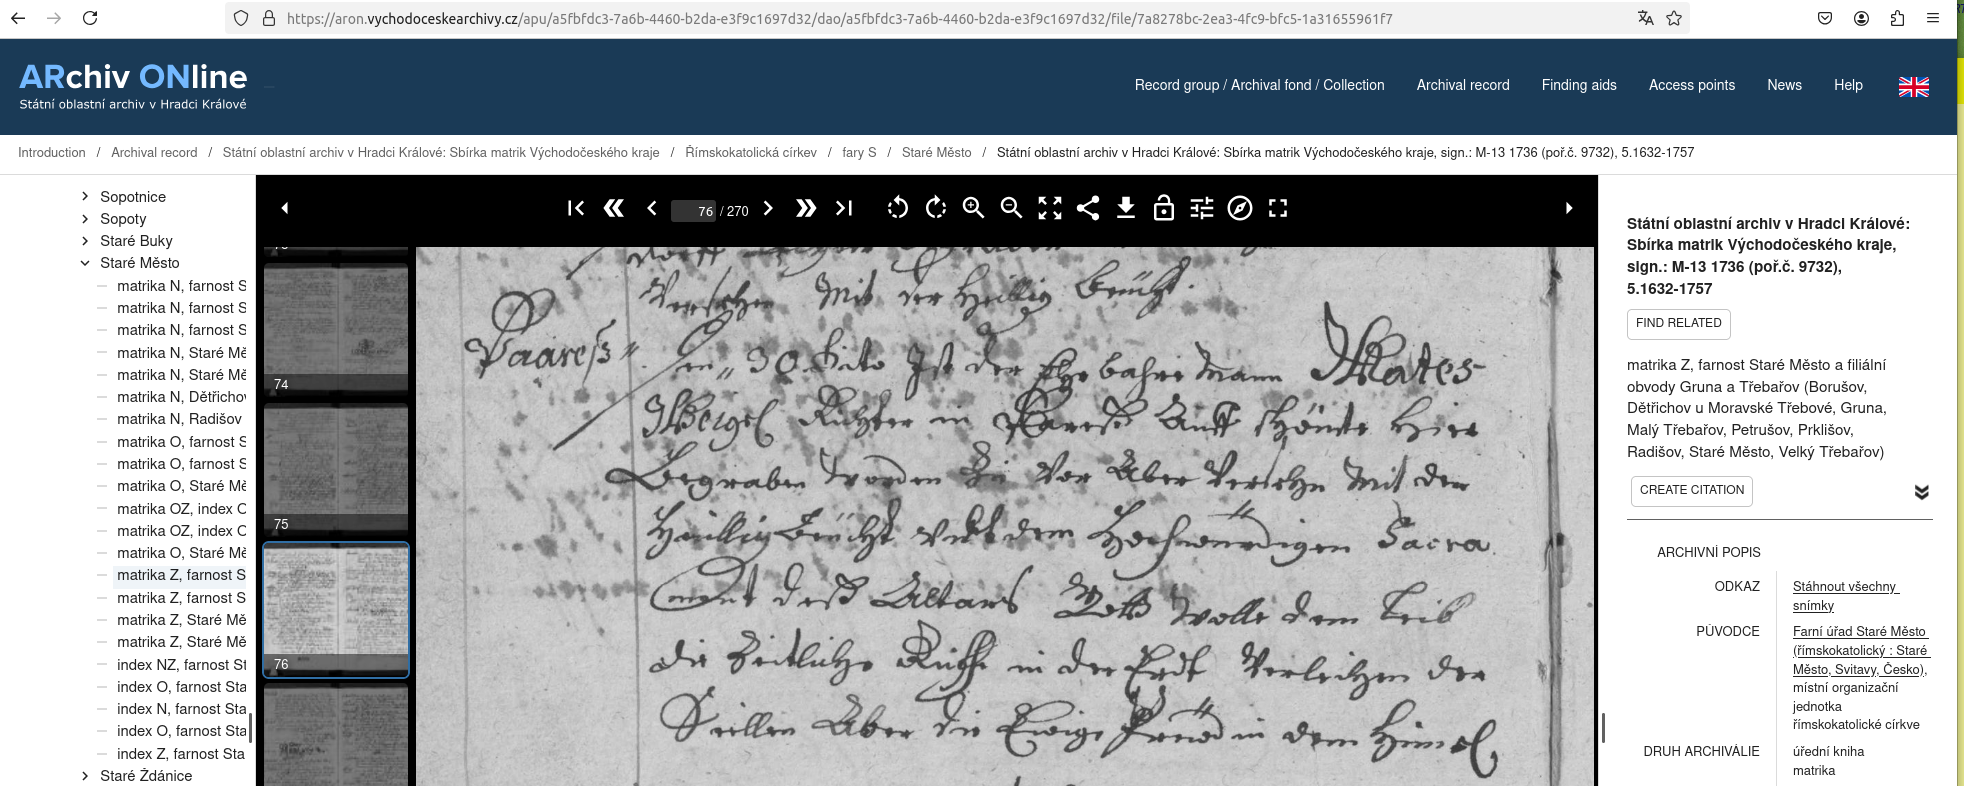 https://aron.vychodoceskearchivy.cz/apu/a5fbfdc3-7a6b-4460-b2da-e3f9c1697d32/dao/a5fbfdc3-7a6b-4460-b2da-e3f9c1697d32/file/7a8278bc-2ea3-4fc9-bfc5-1a31655961f7
ARchiv ONline
Státní oblastní archiv v Hradci Králové
Record group / Archival fond / Collection
Archival record
Finding aids
Access points
News
Help
Introduction / Archival record / Státní oblastní archiv v Hradci Králové: Sbírka matrik Východočeského kraje / Římskokatolická církev / fary S / Staré Město / Státní oblastní archiv v Hradci Králové: Sbírka matrik Východočeského kraje, sign.: M-13 1736 (poř.č. 9732), 5.1632-1757
Sopotnice
Sopoty
Staré Buky
Staré Město
matrika N, farnost S
matrika N, farnost S
matrika N, farnost S
matrika N, Staré Mě
matrika N, Staré Mě
matrika N, Dětřichov
matrika N, Radišov
matrika O, farnost S
matrika O, farnost S
matrika O, Staré Mě
matrika OZ, index O
matrika OZ, index O
matrika O, Staré Mě
matrika Z, farnost S
matrika Z, farnost S
matrika Z, Staré Mě
matrika Z, Staré Mě
index NZ, farnost St
index O, farnost Sta
index N, farnost Sta
index O, farnost Sta
index Z, farnost Sta
Staré Ždánice
76 / 270
74
75
76
Versehen Mit der Heilig Beücht.
Paareß
30 Dito Ist der Ehrbahre Mann Mates
Richter in Pareß Auff schönste Hier
Begraben worden Zu vor Aber Versehn Mit der
Heillig Beücht Undt dem Hochwürdigen Sacra
ment deß Altars Gott wolle dem Leib
die Zeitliche Ruhe in der Erdt Verleichen der
Seellen Aber die Ewige Freüd in dem Himel
Státní oblastní archiv v Hradci Králové:
Sbírka matrik Východočeského kraje,
sign.: M-13 1736 (poř.č. 9732),
5.1632-1757
FIND RELATED
matrika Z, farnost Staré Město a filiální
obvody Gruna a Třebařov (Borušov,
Dětřichov u Moravské Třebové, Gruna,
Malý Třebařov, Petrušov, Prklišov,
Radišov, Staré Město, Velký Třebařov)
CREATE CITATION
ARCHIVNÍ POPIS
ODKAZ
Stáhnout všechny
snímky
PŮVODCE
Farní úřad Staré Město
(římskokatolický : Staré
Město, Svitavy, Česko),
místní organizační
jednotka
římskokatolické církve
DRUH ARCHIVÁLIE
úřední kniha
matrika